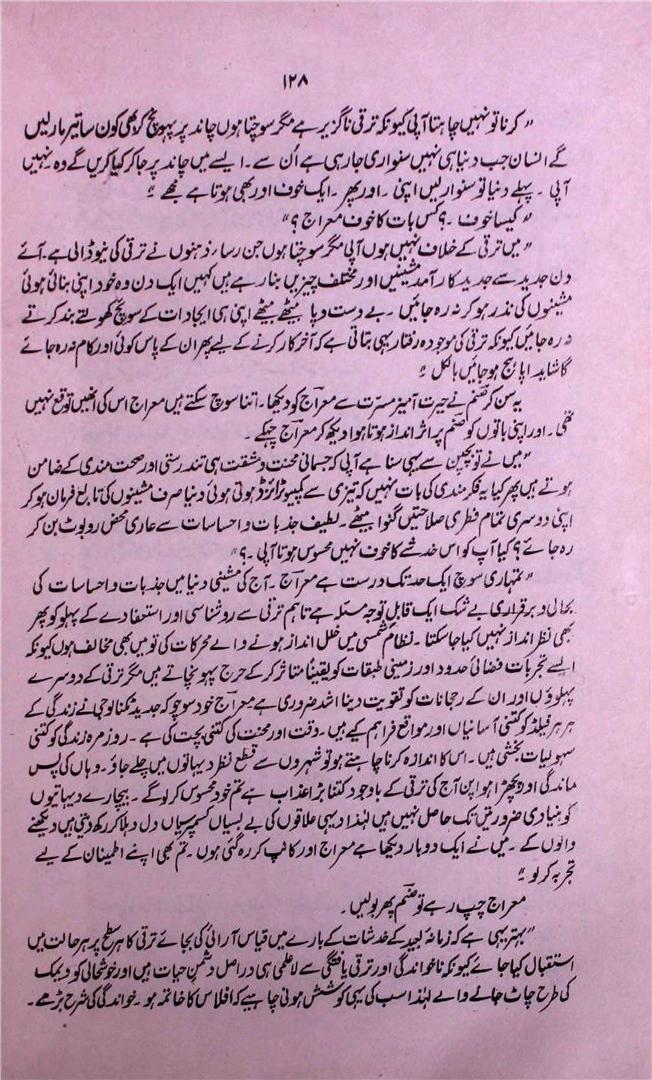 ۱۲۸
”کرنا تو نہیں چاہتا آپی کیونکہ ترقی ناگزیر ہے مگر سوچتا ہوں چاند پر پہونچ کر بھی کون سا تیر مار لیں
گے انسان جب دنیا ہی نہیں سنواری جا رہی ہے اُن سے۔ ایسے میں چاند پر جا کر کیا کریں گے وہ نہیں
آپی ۔ پہلے دنیا تو سنوار لیں اپنی ۔ اور پھر ۔ ایک خوف اور بھی ہوتا ہے مجھے ۔“
”کیسا خوف ۔؟ کس بات کا خوف معراج ؟“
”میں ترقی کے خلاف نہیں ہوں آپی مگر سوچتا ہوں جن رسا ذہنوں نے ترقی کی نیو ڈالی ہے۔ آئے
دن جدید سے جدید کارآمد مشینیں اور مختلف چیزیں بنا رہے ہیں کہیں ایک دن وہ خود اپنی بنائی ہوئی
مشینوں کی نذر ہو کر نہ رہ جائیں ۔ بے دست و پا بیٹھے بیٹھے اپنی ہی ایجادات کے سوئچ کھولتے بند کرتے
نہ رہ جائیں کیونکہ ترقی کی موجودہ رفتار یہی بتاتی ہے کہ آخر کار کرنے کے لیے پھر ان کے پاس کوئی اور کام نہ رہ جائے
گا شاید اپاہج ہو جائیں بالکل ۔“
یہ سن کر صنم نے حیرت آمیز مسرت سے معراج کو دیکھا۔ اتنا سوچ سکتے ہیں معراج اس کی انھیں توقع نہیں
تھی ۔ اور اپنی باتوں کو صنم پر اثر انداز ہوتا ہوا دیکھ کر معراج چہکے ۔
”میں نے تو بچپن سے یہی سنا ہے آپی کہ جسمانی محنت و مشقت ہی تندرستی اور صحت مندی کے ضامن
ہوتے ہیں پھر کیا یہ فکرمندی کی بات نہیں کہ تیزی سے کمپیوٹرائزڈ ہوتی ہوئی دنیا صرف مشینوں کی تابع فرمان ہو کر
اپنی دوسری تمام فطری صلاحتیں گنوا بیٹھے۔ لطیف جذبات و احساسات سے عاری محض روبوٹ بن کر
رہ جائے؟ کیا آپ کو اس خدشے کا خوف نہیں محسوس ہوتا آپی ۔؟“
”تمہاری سوچ ایک حد تک درست ہے معراج ۔ آج کی مشینی دنیا میں جذبات و احساسات کی
بحالی و برقراری بے شک ایک قابلِ توجہ مسئلہ ہے تاہم ترقی سے روشناسی اور استفادے کے پہلو کو پھر
بھی نظر انداز نہیں کیا جا سکتا ۔ نظامِ شمسی میں خلل انداز ہونے والے محرکات کی تو میں بھی مخالف ہوں کیونکہ
ایسے تجربات فضائی حدود اور زمینی طبقات کو یقیناً متاثر کر کے حرج پہونچاتے ہیں مگر ترقی کے دوسرے
پہلوؤں اور ان کے رجحانات کو تقویت دینا اشد ضروری ہے معراج خود سوچو کہ جدید ٹکنالوجی نے زندگی کے
ہر ہر فیلڈ کو کتنی آسانیاں اور مواقع فراہم کیے ہیں۔ وقت اور محنت کی کتنی بچت کی ہے ۔ روزمرہ زندگی کو کتنی
سہولیات بخشی ہیں۔ اس کا اندازہ کرنا چاہتے ہو تو شہروں سے قطع نظر دیہاتوں میں چلے جاؤ۔ وہاں کی پس
ماندگی اور پچھڑا ہوا پن آج کی ترقی کے باوجود کتنا بڑا عذاب ہے تم خود محسوس کر لو گے ۔ بیچارے دیہاتیوں
کو بنیادی ضرورتیں تک حاصل نہیں ہیں لہٰذا دیہی علاقوں کی بے بسیاں کسمپرسیاں دل دہلا کر رکھ دیتی ہیں دیکھنے
والوں کے ۔ میں نے ایک دو بار دیکھا ہے معراج اور کانپ کر رہ گئی ہوں ۔ تم بھی اپنے اطمینان کے لیے
تجربہ کر لو ۔“
معراج چپ رہے تو صنم پھر بولیں ۔
”بہتر یہی ہے کہ زمانۂ بعید کے خدشات کے بارے میں قیاس آرائی کی بجائے ترقی کا ہر سطح پر ہر حالت میں
استقبال کیا جائے کیونکہ ناخواندگی اور ترقی یافتگی سے لاعلمی ہی دراصل دشمنِ حیات ہیں اور خوشحالی کو دیمک
کی طرح چاٹ جانے والے لہٰذا سب کی یہی کوشش ہونی چاہیے کہ افلاس کا خاتمہ ہو ۔ خواندگی کی شرح بڑھے۔